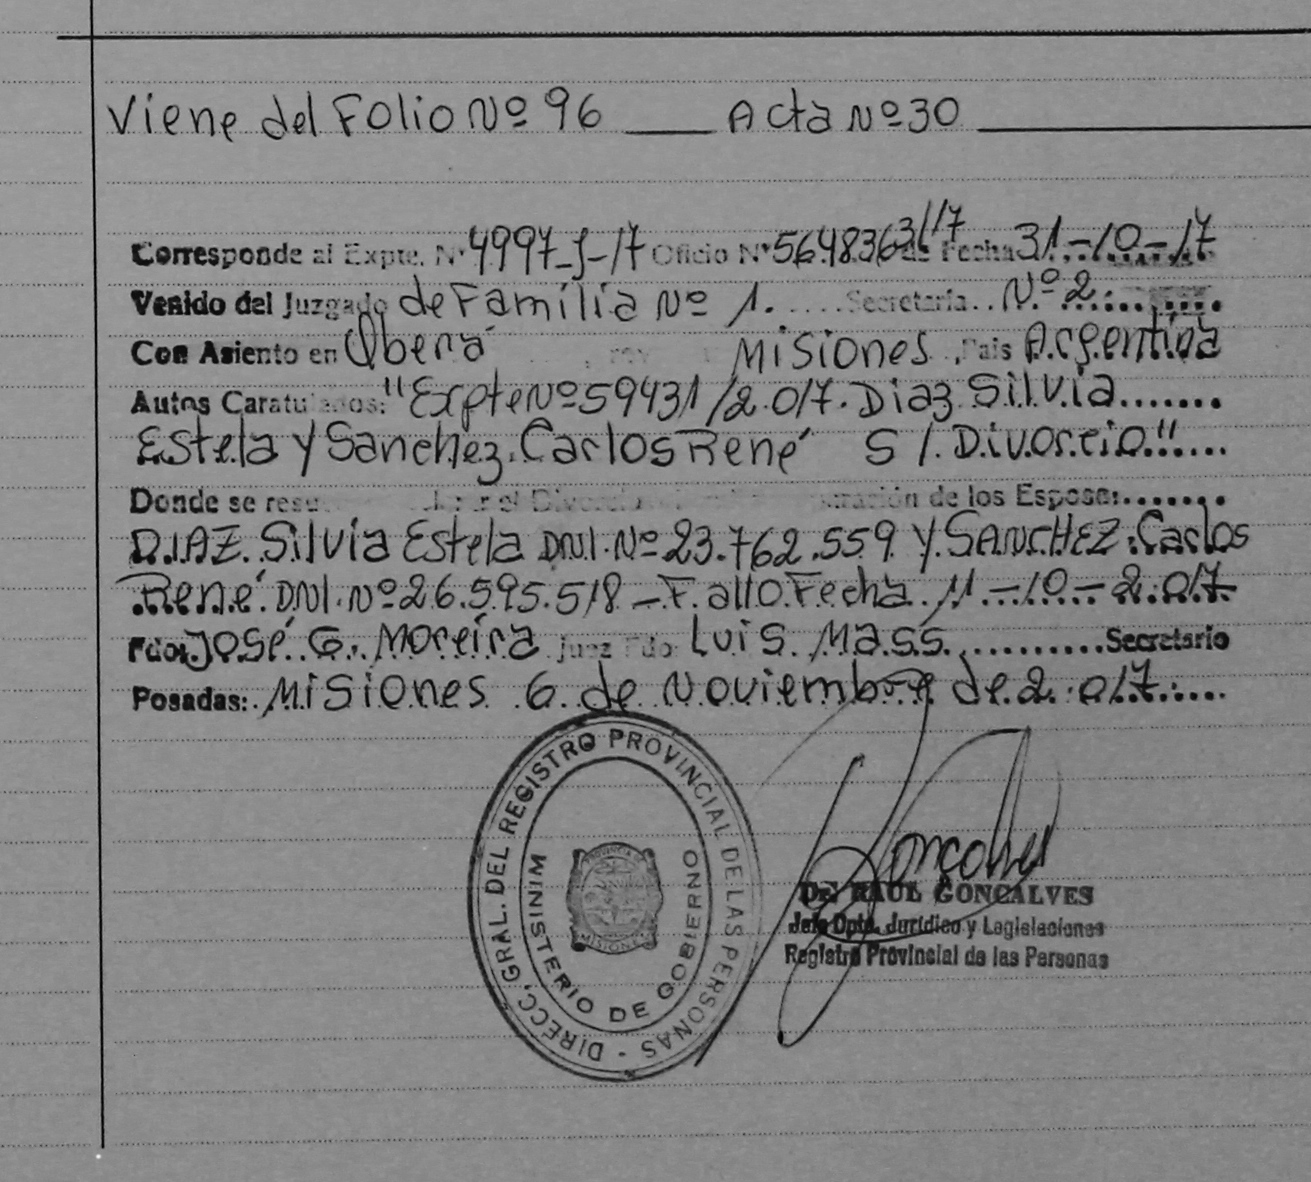 Viene del Folio Nº 96 ___ Acta Nº 30
Corresponde al Expte. Nº 4997-J-17 Oficio Nº de Fecha 31-10-17
Venido del Juzgado de Familia Nº 1. Secretaría Nº 2
Con Asiento en Oberá Misiones País Argentina
Autos Caratulados: "Expte Nº 59431/2017. Diaz Silvia
Estela y Sanchez, Carlos René S/. Divorcio"
Donde se de los Esposos:
DIAZ. Silvia Estela DNI. Nº 23.762.559 y SANCHEZ. Carlos
René. DNI. Nº 26.595.518 - Fallo Fecha 11-10-2017
Fdo: José G. Moreira Juez Fdo Luis Mass. Secretario
Posadas: Misiones 6 de Noviembre de 2017
DIRECC. GRAL. DEL REGISTRO PROVINCIAL DE LAS PERSONAS -
MINISTERIO DE GOBIERNO
PROVINCIA DE
MISIONES
Dr. RAUL GONCALVES
Jefe Dpto. Jurídico y Legislaciones
Registro Provincial de las Personas